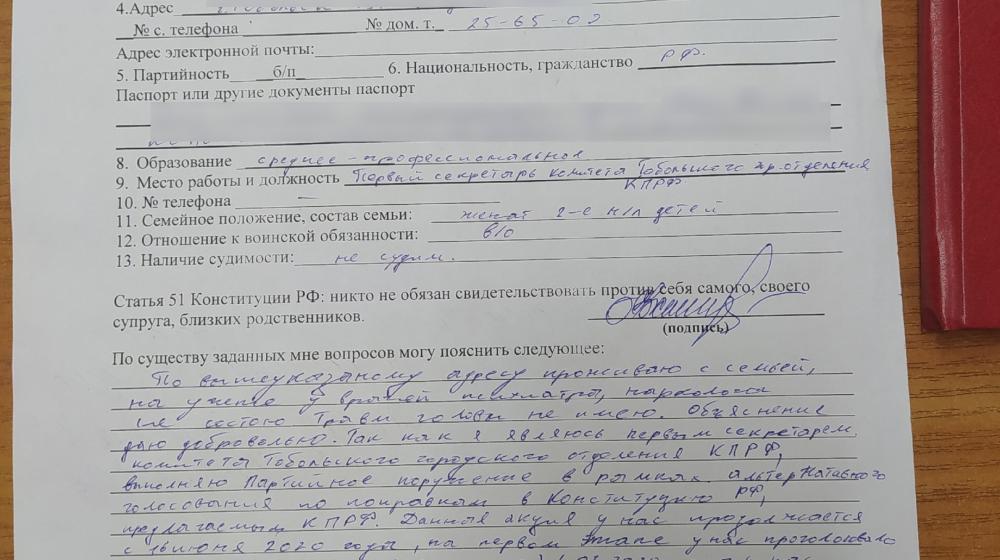 4.Адрес
№ с. телефона № дом. т. 25-65-02
Адрес электронной почты:
5. Партийность б/п 6. Национальность, гражданство РФ.
Паспорт или другие документы паспорт
8. Образование среднее-профессиональное
9. Место работы и должность Первый секретарь комитета Тобольского гр. отделения
КПРФ
10. № телефона —
11. Семейное положение, состав семьи: женат 2-е н/л детей
12. Отношение к воинской обязанности: в/о
13. Наличие судимости: не судим.
Статья 51 Конституции РФ: никто не обязан свидетельствовать против себя самого, своего
супруга, близких родственников.
(подпись)
По существу заданных мне вопросов могу пояснить следующее:
По вышеуказаному адресу проживаю с семьей,
на учете у врачей психиатра, нарколога
не состою Травм головы не имею. Объяснение
даю добровольно. Так как я являюсь первым секретарем
комитета Тобольского городского отделения КПРФ,
выполняю Партийное поручение в рамках альтернативного
голосования по поправкам в Конституцию РФ,
предлагаемым КПРФ. Данная акция у нас продолжается
с 16 июня 2020 года, на первом этапе у нас проголосовало